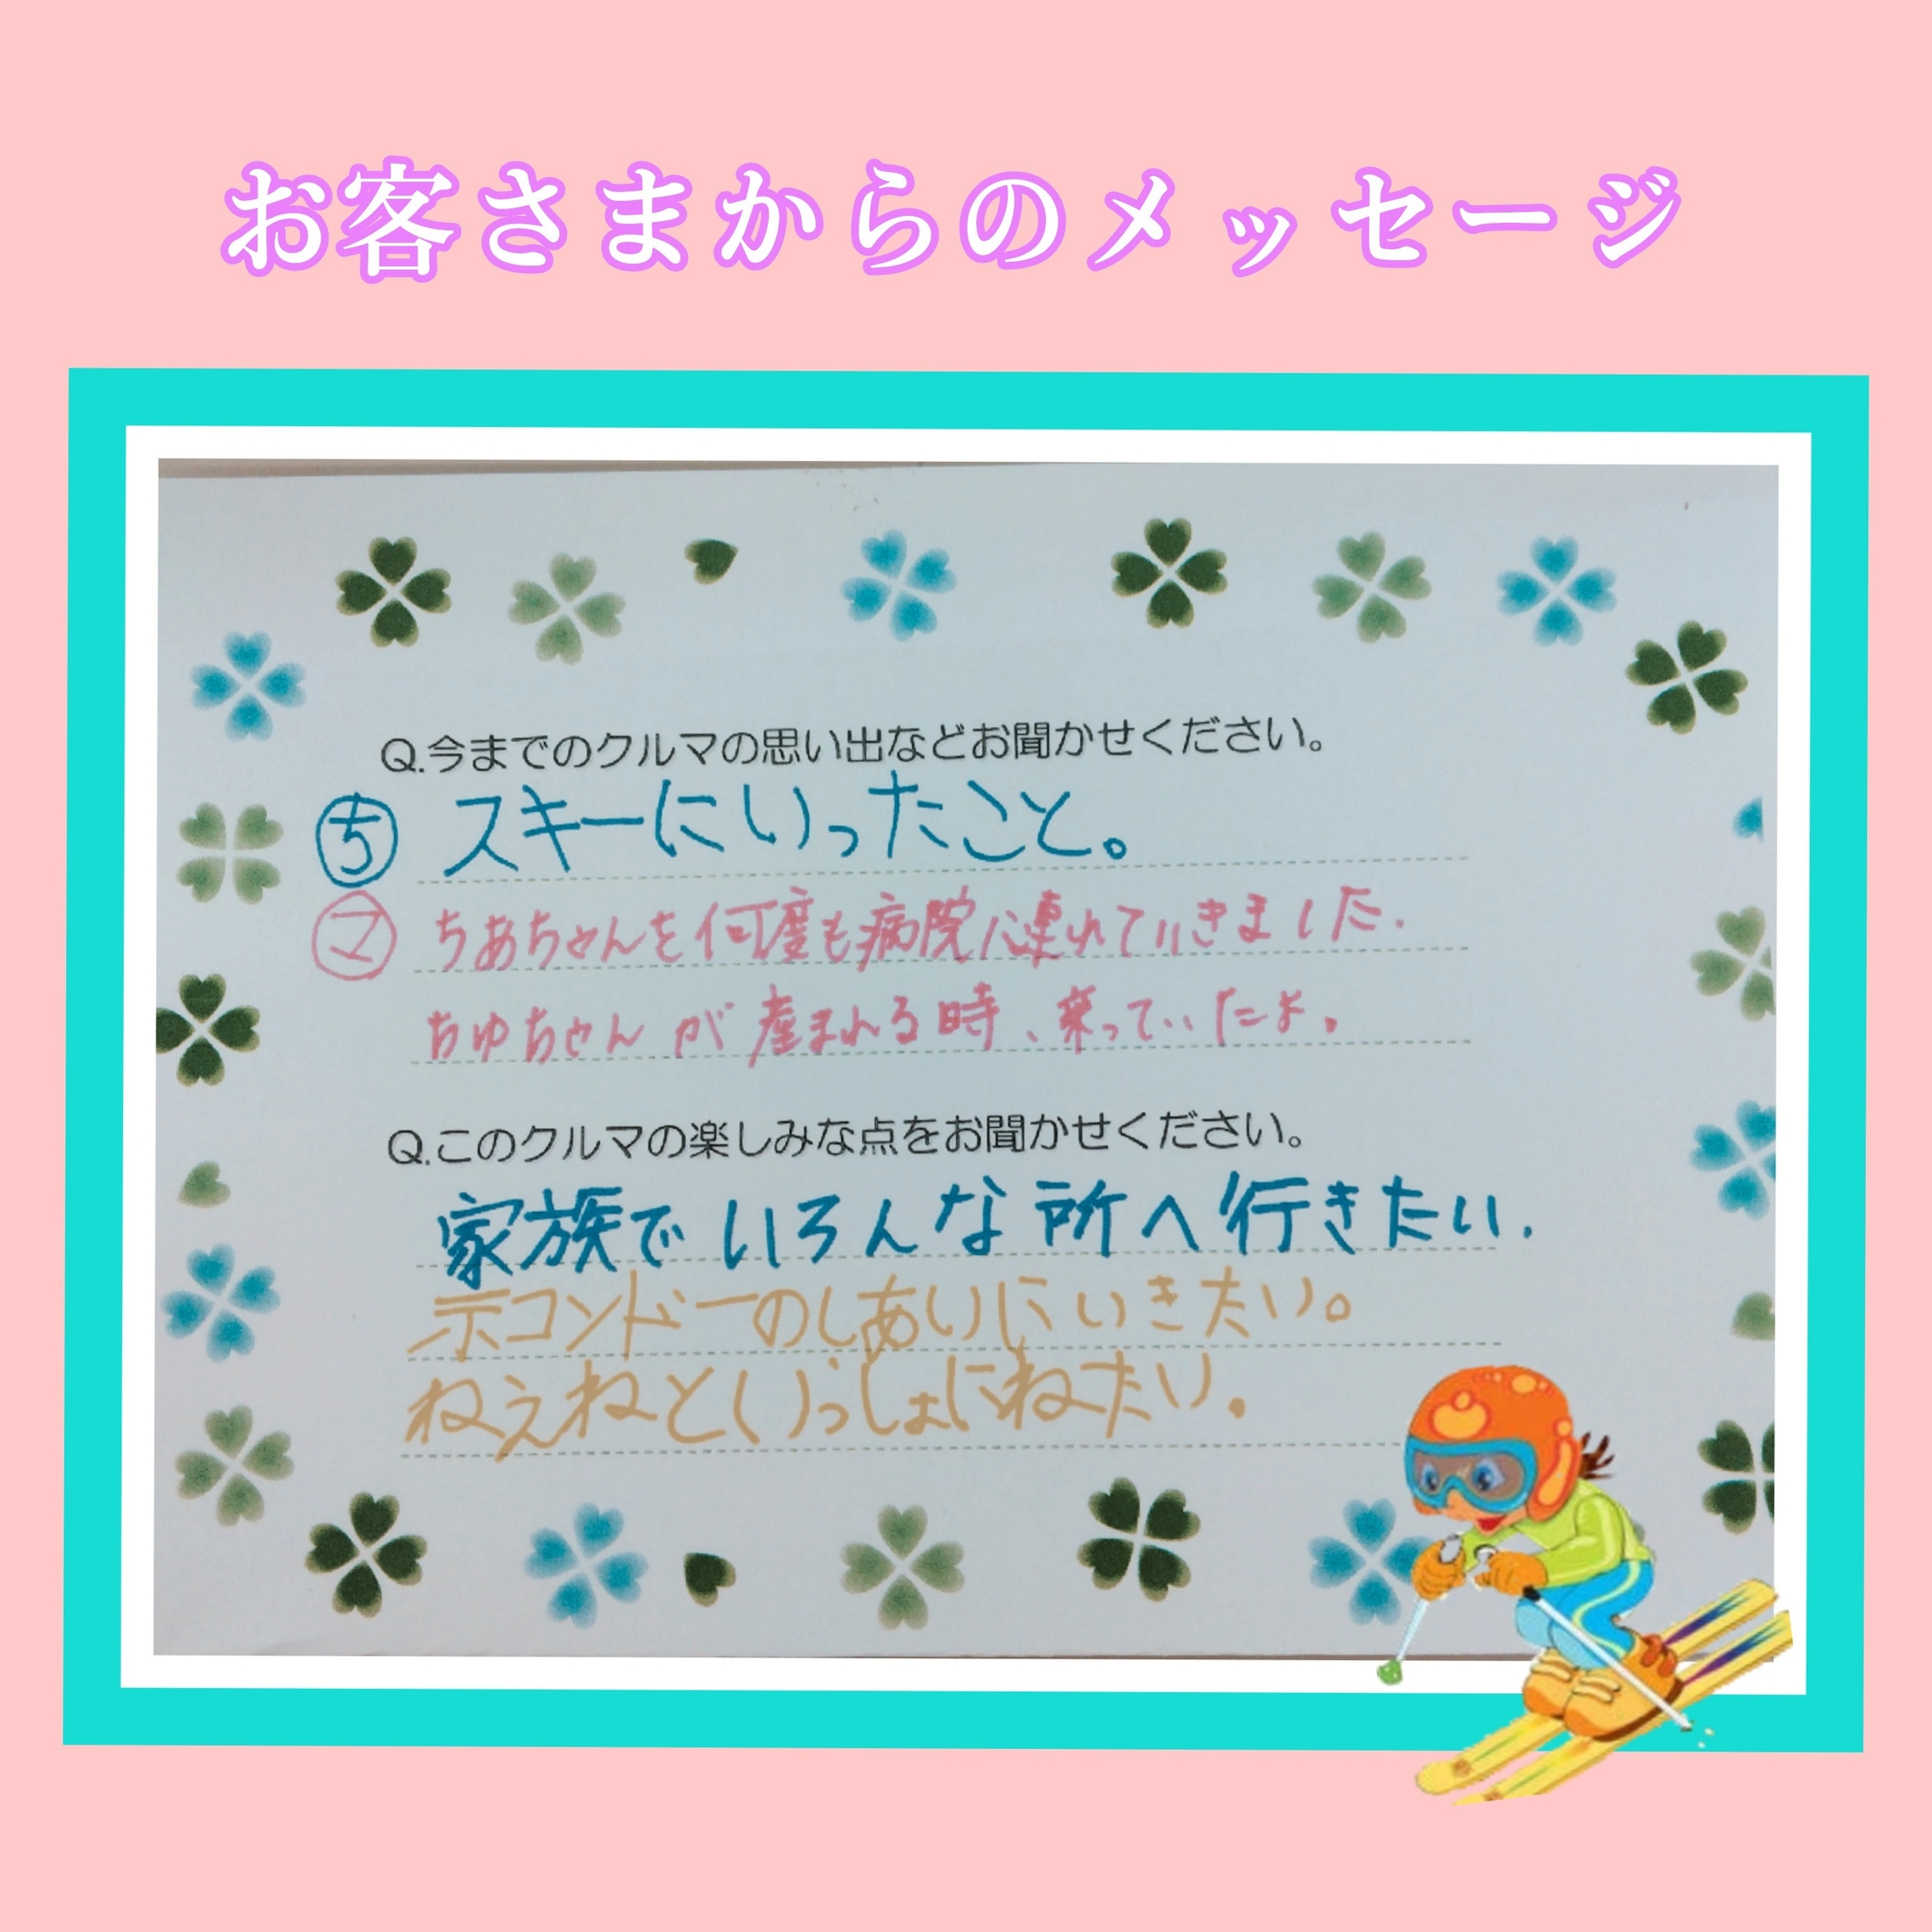 お客さまからのメッセージ
Q.今までのクルマの思い出などお聞かせください。
ち スキーにいったこと。
マ ちあちゃんを何度も病院へ連れていきました.
ちゆちゃんが産まれる時、乗っていたよ。
Q.このクルマの楽しみな点をお聞かせください。
家族でいろんな所へ行きたい.
テコンドーのしあいにいきたい。
ねえねといっしょにねたい。